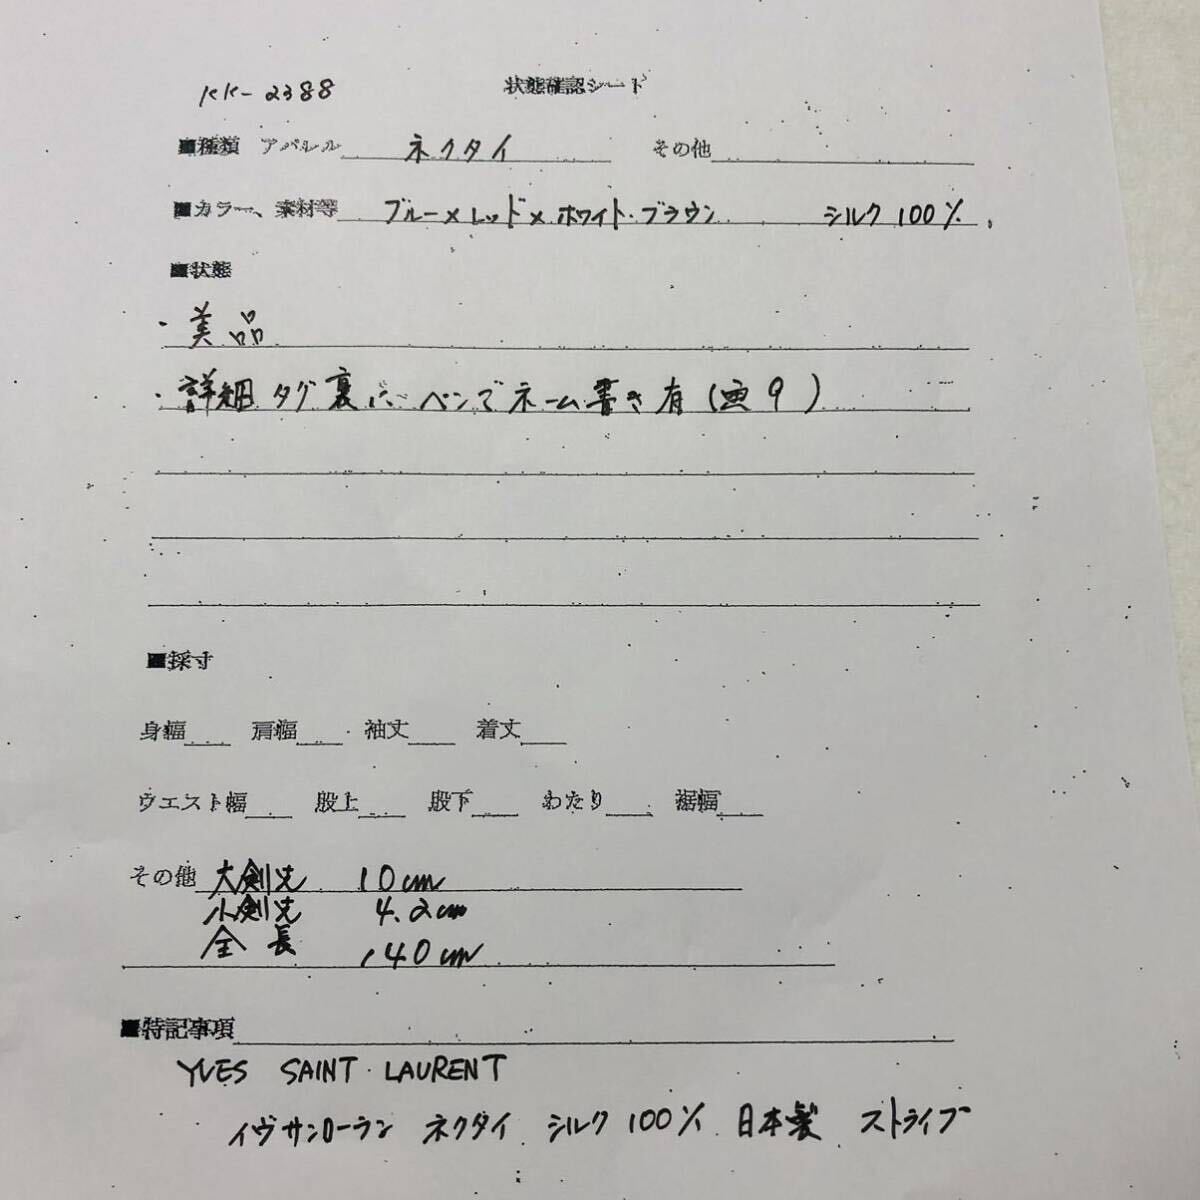 KK-2388 状態確認シート
■種類 アパレル ネクタイ その他
■カラー、素材等 ブルー×レッド×ホワイト・ブラウン シルク100%
■状態
・美品
・詳細タグ裏にペンでネーム書き有(画9)
■採寸
身幅 肩幅 袖丈 着丈
ウエスト幅 股上 股下 わたり 裾幅
その他 大剣先 10cm
小剣先 4.2cm
全長 140cm
■特記事項
YVES SAINT LAURENT
イヴサンローラン ネクタイ シルク100% 日本製 ストライプ